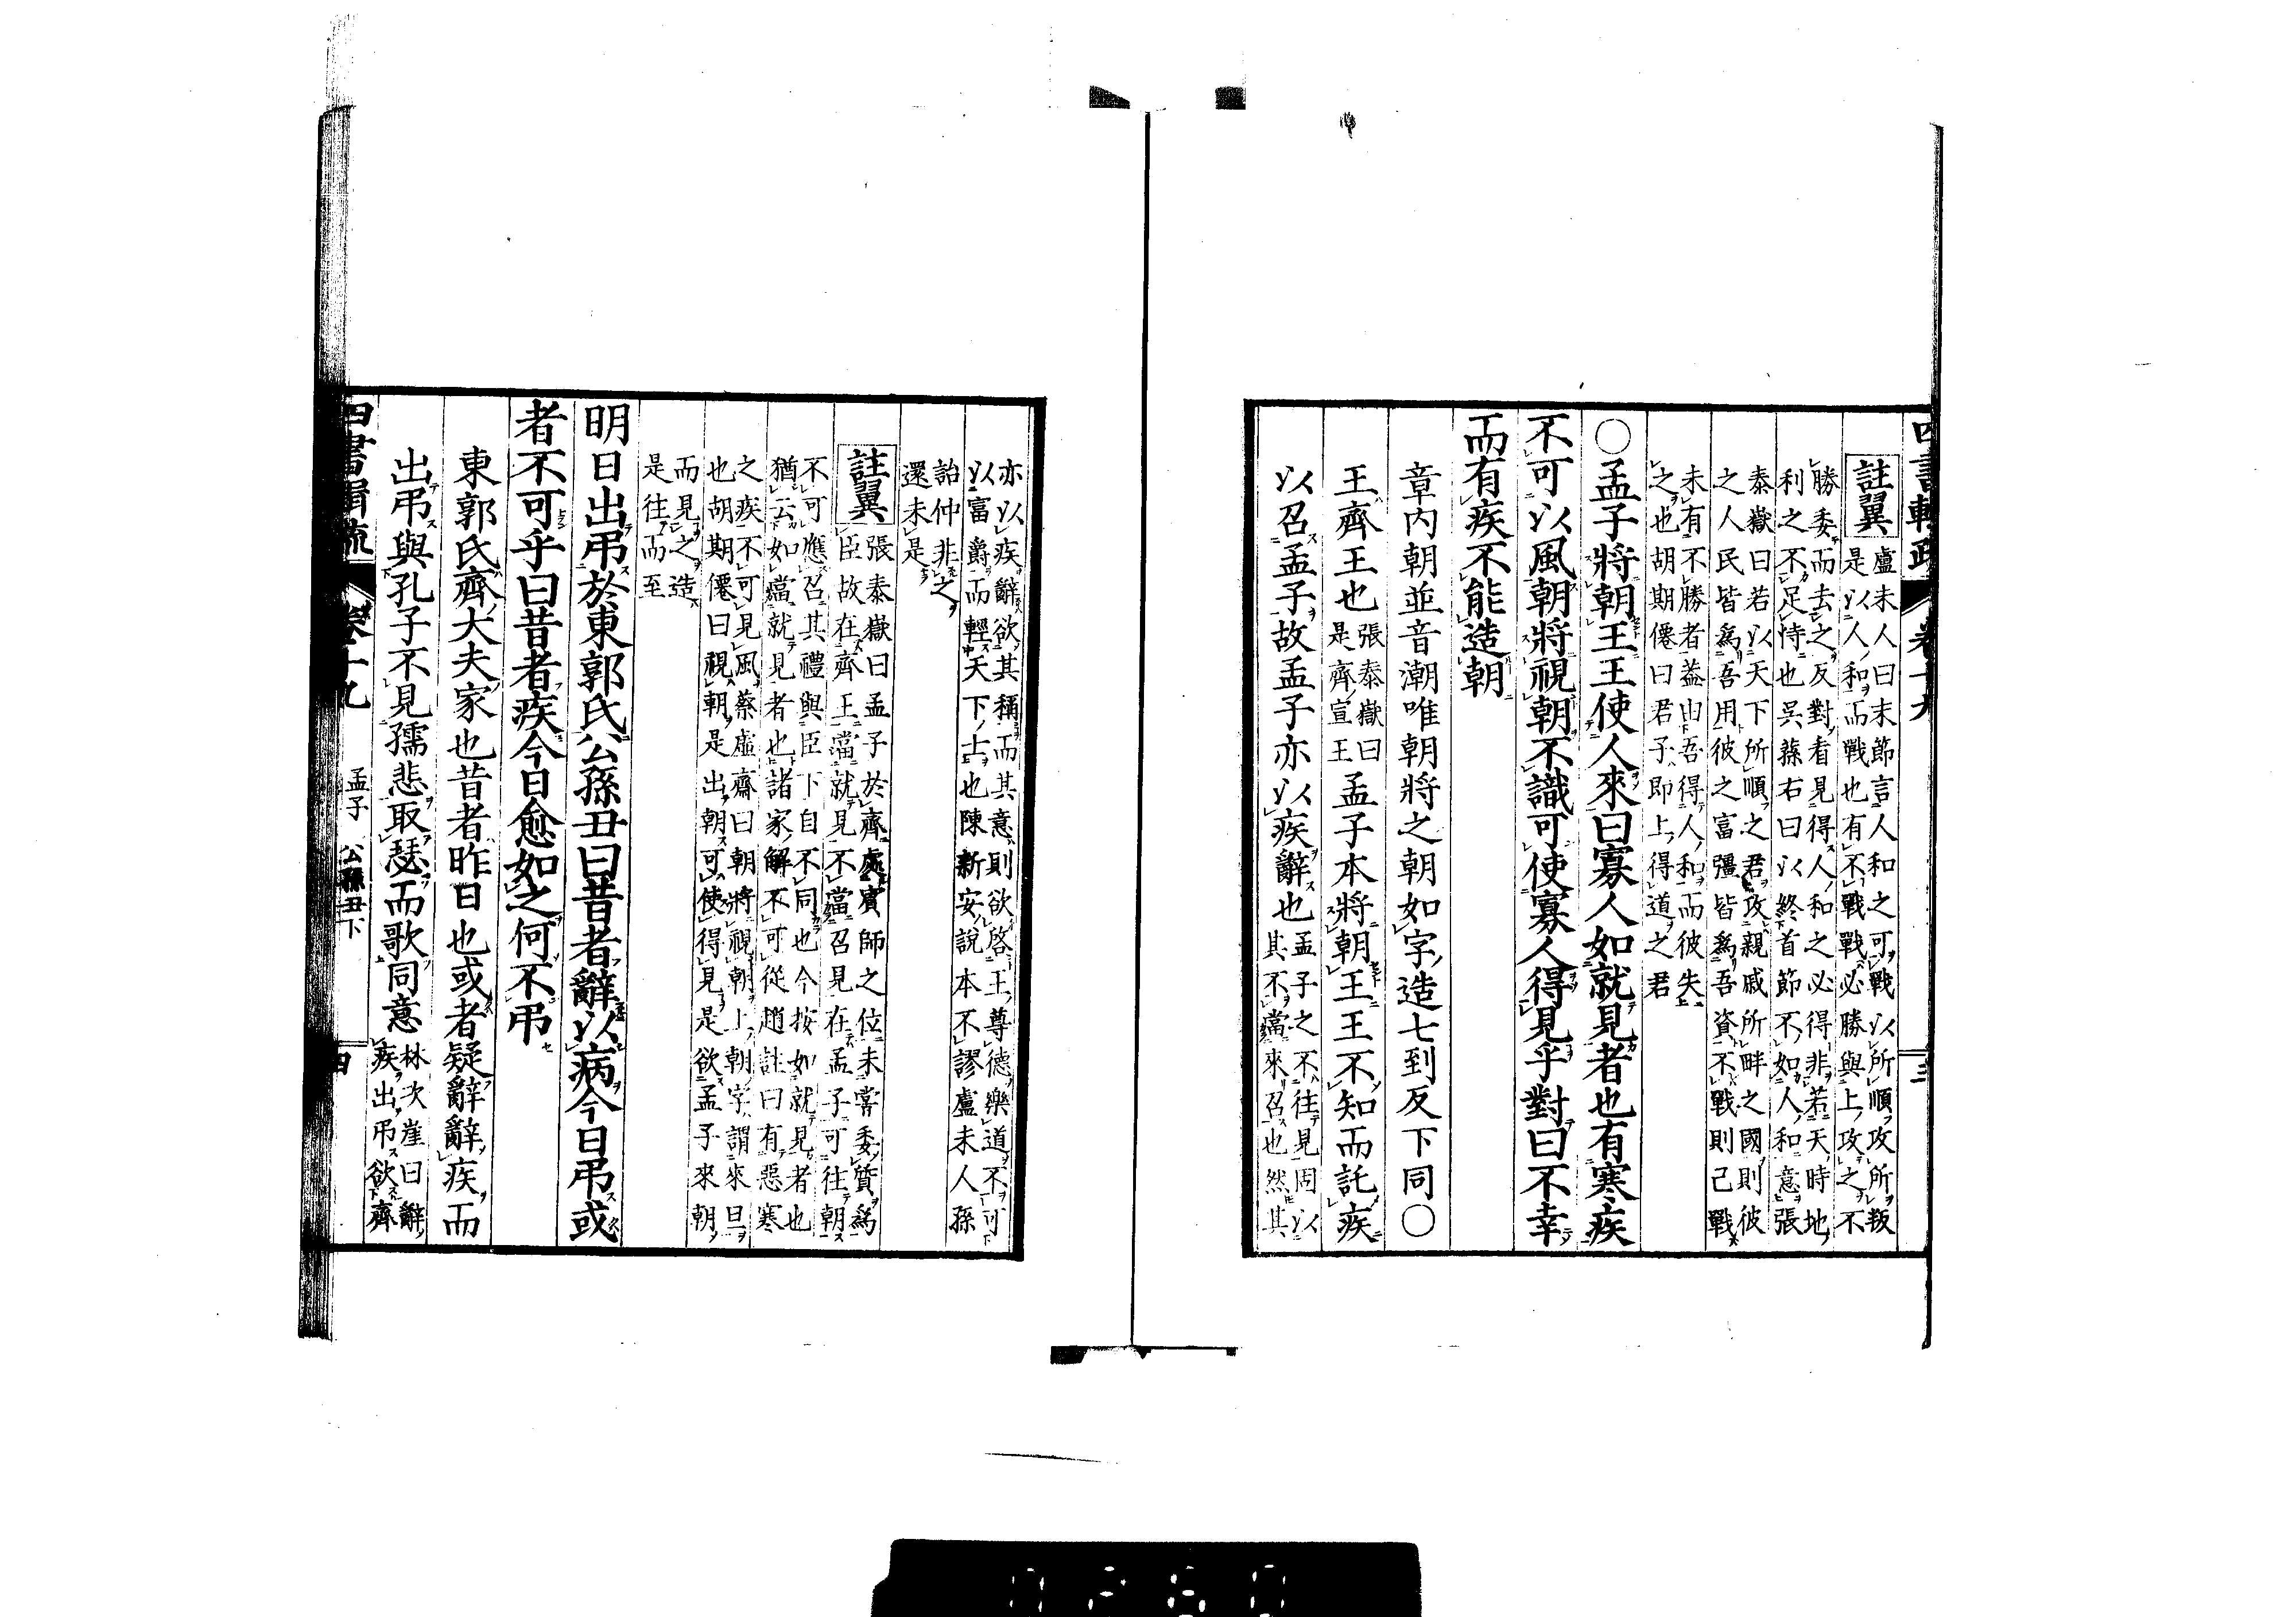 四書輯疏 卷十九 三
註翼 盧未人曰末節言人和之可戰以所順攻所叛
是以人和而戰也有不戰戰必勝與上攻之不
勝委而去之反對看見得人和之必得非若天時地
利之不足恃也吳蓀右曰以終首節不如人和意張
泰嶽曰若以天下所順之君攻親戚所畔之國則彼
之人民皆爲吾用彼之富彊皆爲吾資不戰則已戰
未有不勝者蓋由吾得人和而彼失
之也胡期僊曰君子卽上得道之君
○孟子將朝王王使人來曰寡人如就見者也有寒疾
不可以風朝將視朝不識可使寡人得見乎對曰不幸
而有疾不能造朝
章内朝並音潮唯朝將之朝如字造七到反下同○
王齊王也張泰嶽曰是齊宣王孟子本將朝王王不知而託疾
以召孟子故孟子亦以疾辭也孟子之不往見固以其不當來召也然其
亦以疾辭欲其稱而其意則欲啓王尊德樂道不可
以富爵而輕天下士也陳新安說本不謬盧未人孫
詒仲非之
還未是
註翼 張泰嶽曰孟子於齊處賓師之位未嘗委質爲
臣故在齊王當就見不當召見在孟子可往朝
不可應召其禮與臣下自不同也今按如就見者也
猶云如當就見者也諸家解不可從趙註曰有惡寒
之疾不可見風蔡虛齋曰朝將視朝上朝字謂來旦
也胡期僊曰視朝是出朝可使得見是欲孟子來朝
而見之造
是往而至
明日出弔於東郭氏公孫丑曰昔者辭以病今日弔或
者不可乎曰昔者疾今日愈如之何不弔
東郭氏齊大夫家也昔者昨日也或者疑辭辭疾而
出弔與孔子不見孺悲取瑟而歌同意林次崖曰辭疾出弔欲齊
四書輯疏 卷十九 孟子 公孫丑下 四